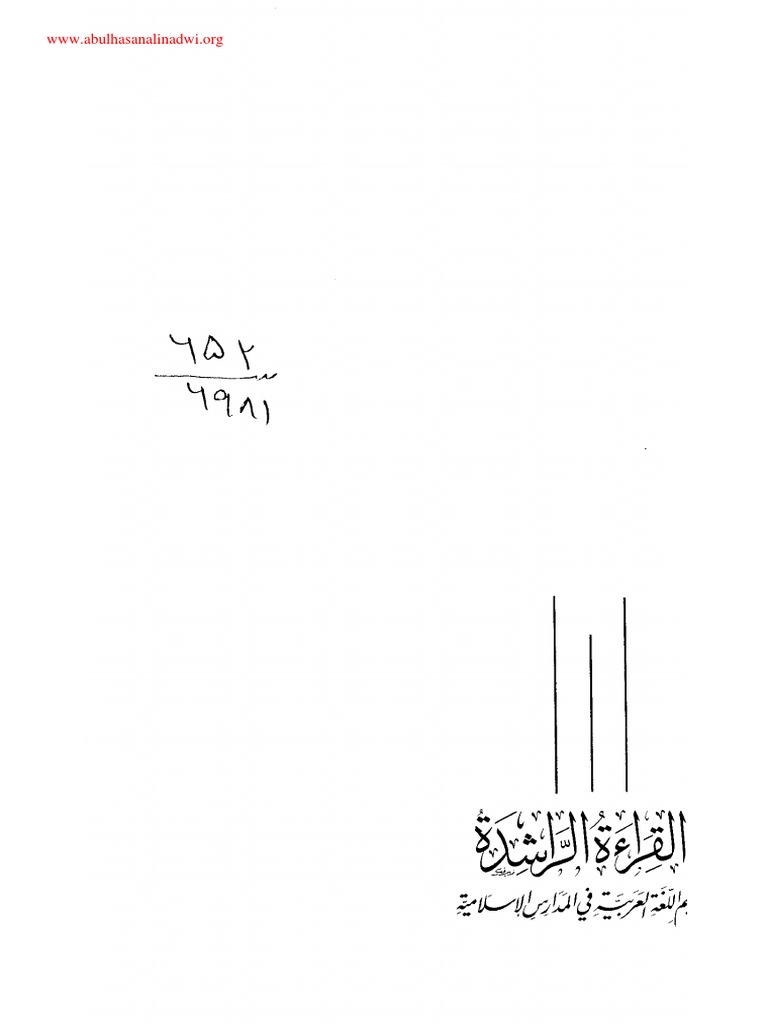 www.abulhasanalinadwi.org
۶۵۲
۶۹۸۱
القِرَاءَةُ الرَّاشِدَةُ
اللُّغَةِ العَرَبِيَّةِ فِي المَدَارِسِ الإِسْلَامِيَّةِ